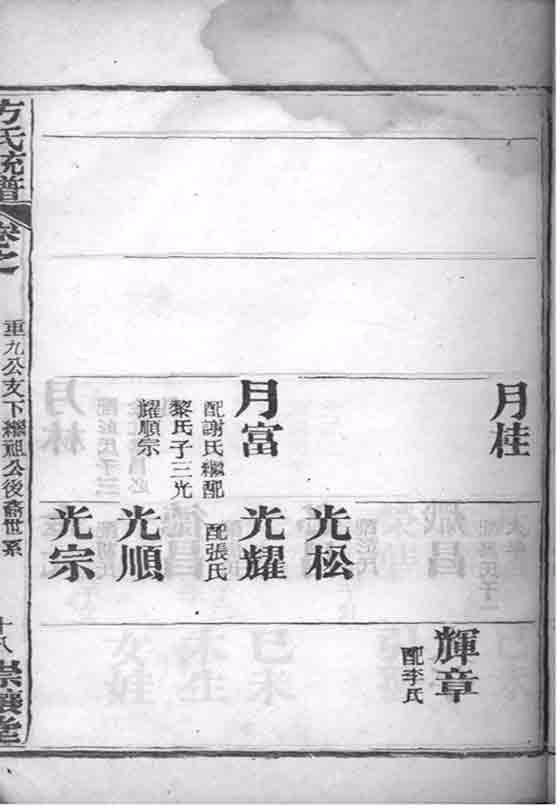 月桂
月富
配謝氏繼配
黎氏子三光
耀順宗
光松
光耀
配張氏
光順
光宗
輝章
配李氏
方氏統譜
卷之
重九公支下繼祖公後裔世系
十八